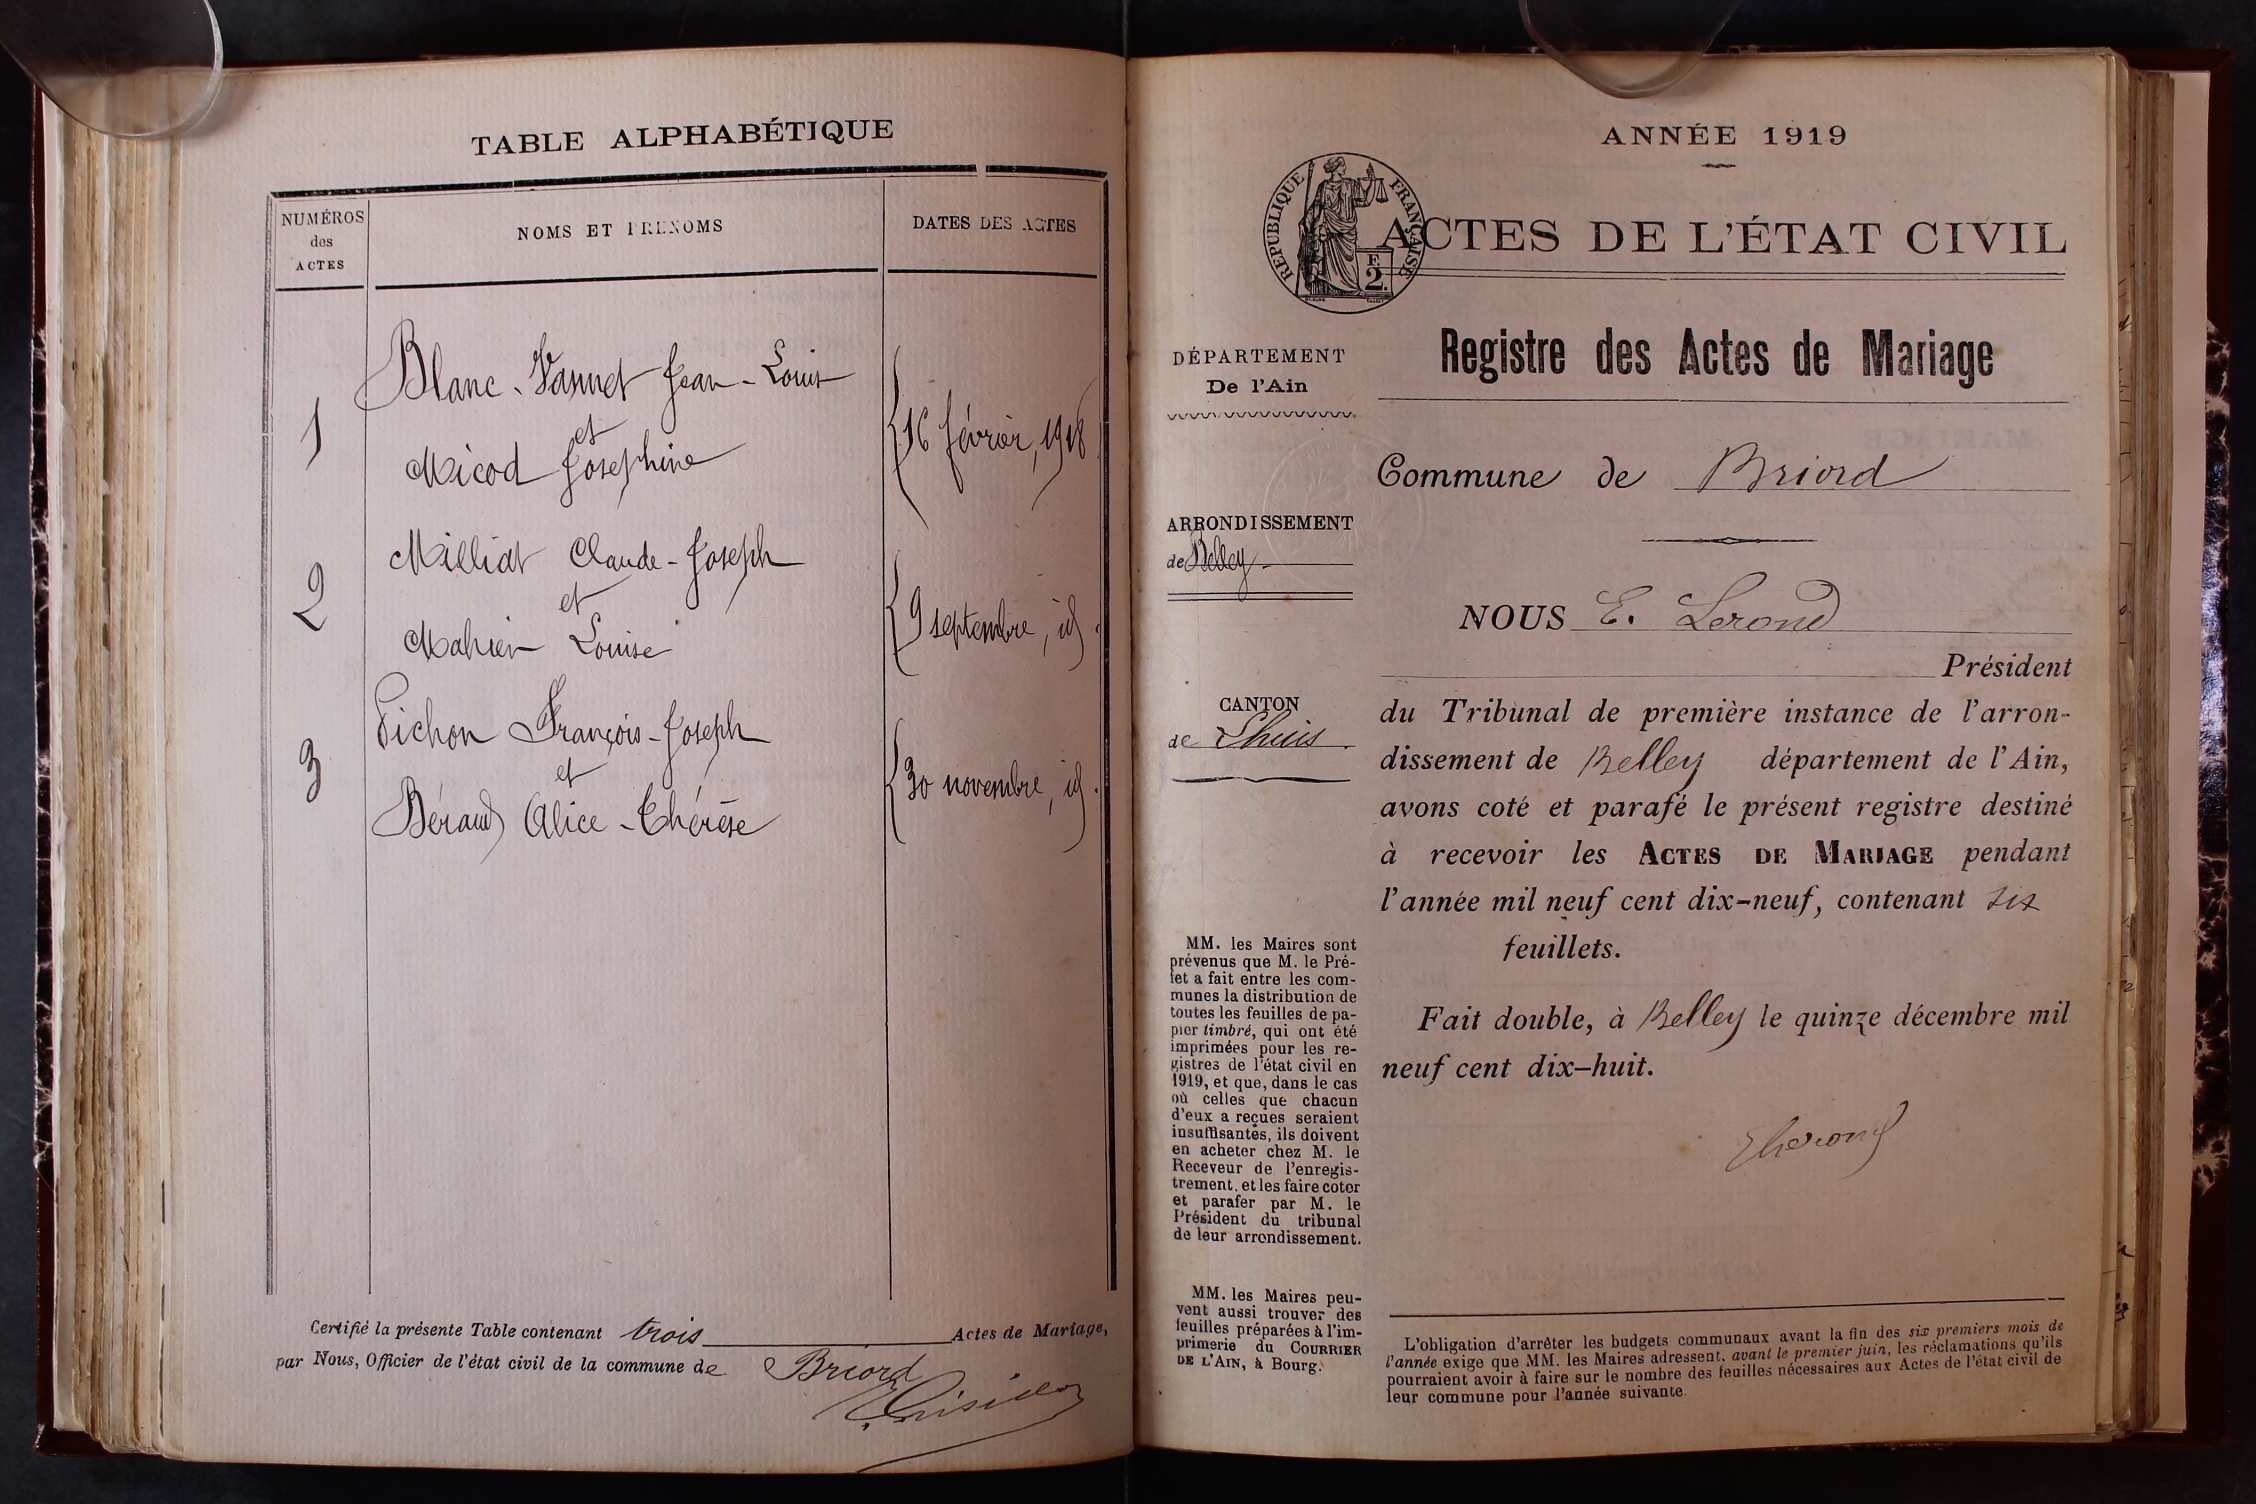 TABLE ALPHABÉTIQUE
NUMÉROS
des
ACTES
NOMS ET PRÉNOMS
DATES DES ACTES
1
Blanc-Vannet Jean-Louis
et
Micod Josephine
16 février, 1918
2
Milliat Claude-Joseph
et
Mahier Louise
9 septembre, id.
3
Pichon François-Joseph
et
Béraud Alice-Thérèse
30 novembre, id.
Certifié la présente Table contenant trois Actes de Mariage,
par Nous, Officier de l'état civil de la commune de Briord
ANNÉE 1919
RÉPUBLIQUE FRANÇAISE
F.
2.
ACTES DE L'ÉTAT CIVIL
Registre des Actes de Mariage
DÉPARTEMENT
De l'Ain
Commune de Briord
ARRONDISSEMENT
de Belley
NOUS E. Lerond
Président
CANTON
de Lhuis.
du Tribunal de première instance de l'arron-
dissement de Belley département de l'Ain,
avons coté et parafé le présent registre destiné
à recevoir les ACTES DE MARIAGE pendant
l'année mil neuf cent dix-neuf, contenant six
feuillets.
Fait double, à Belley le quinze décembre mil
neuf cent dix-huit.
MM. les Maires sont
prévenus que M. le Pré-
fet a fait entre les com-
munes la distribution de
toutes les feuilles de pa-
pier timbré, qui ont été
imprimées pour les re-
gistres de l'état civil en
1919, et que, dans le cas
où celles que chacun
d'eux a reçues seraient
insuffisantes, ils doivent
en acheter chez M. le
Receveur de l'enregis-
trement, et les faire coter
et parafer par M. le
Président du tribunal
de leur arrondissement.
MM. les Maires peu-
vent aussi trouver des
feuilles préparées à l'im-
primerie du COURRIER
DE L'AIN, à Bourg.
L'obligation d'arrêter les budgets communaux avant la fin des six premiers mois de
l'année exige que MM. les Maires adressent, avant le premier juin, les réclamations qu'ils
pourraient avoir à faire sur le nombre des feuilles nécessaires aux Actes de l'état civil de
leur commune pour l'année suivante.